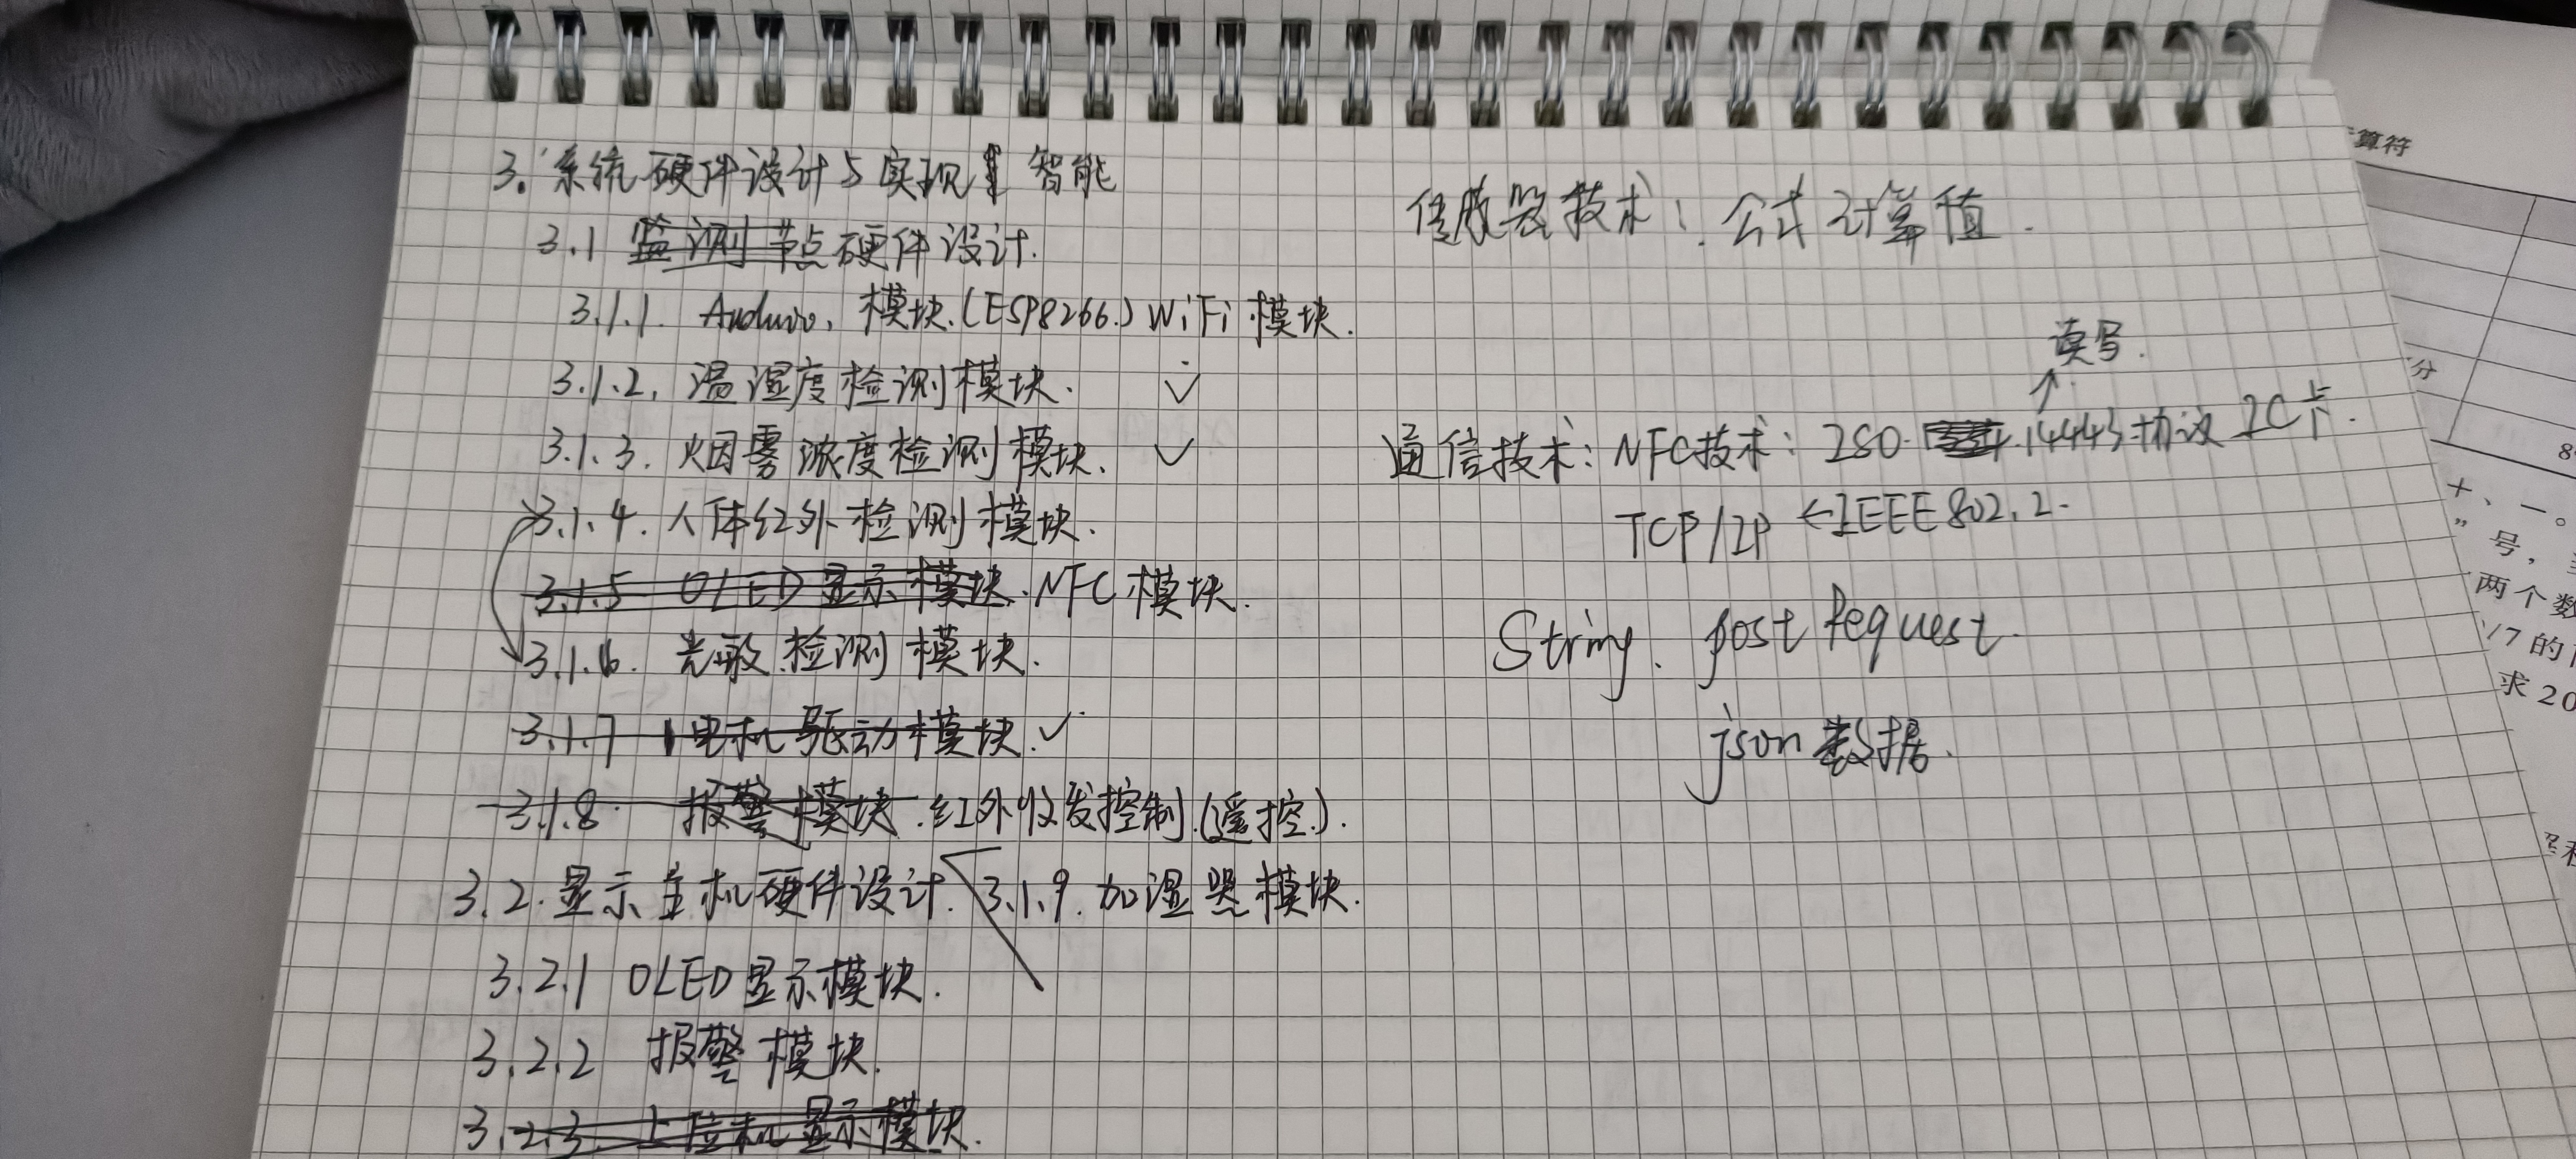 3. 系统硬件设计与实现 智能
3.1 监测节点硬件设计.
3.1.1. Arduino. 模块.(ESP8266.) WiFi 模块.
3.1.2. 温湿度检测模块. ✓
3.1.3. 烟雾浓度检测模块. ✓
3.1.4. 人体红外检测模块.
3.1.5 OLED 显示模块. NFC 模块.
3.1.6. 光敏检测模块.
3.1.7 电机驱动模块. ✓
3.1.8 报警模块. 红外收发控制.(遥控.).
3.2. 显示主机硬件设计. 3.1.9. 加湿器模块.
3.2.1 OLED显示模块.
3.2.2 报警模块.
3.2.3. 上位机显示模块.
传感器技术: 公式计算值.
读写.
通信技术: NFC技术: ISO 14443协议 IC卡.
TCP/IP ←IEEE802.2.
String. post Request.
json 数据.
算符
分
8
十、一。
”号，
两个数
1/7 的
求 20